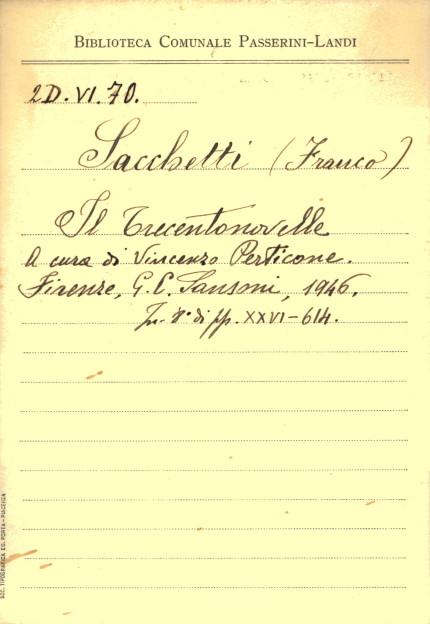 BIBLIOTECA COMUNALE PASSERINI-LANDI
2D.VI.70.
Sacchetti (Franco)
Il Trecentonovelle
A cura di Vincenzo Perticone.
Firenze, G. C. Sansoni, 1946.
In-8° di pp. XXVI-614.
SOC. TIPOGRAFICA ED. PORTA - PIACENZA